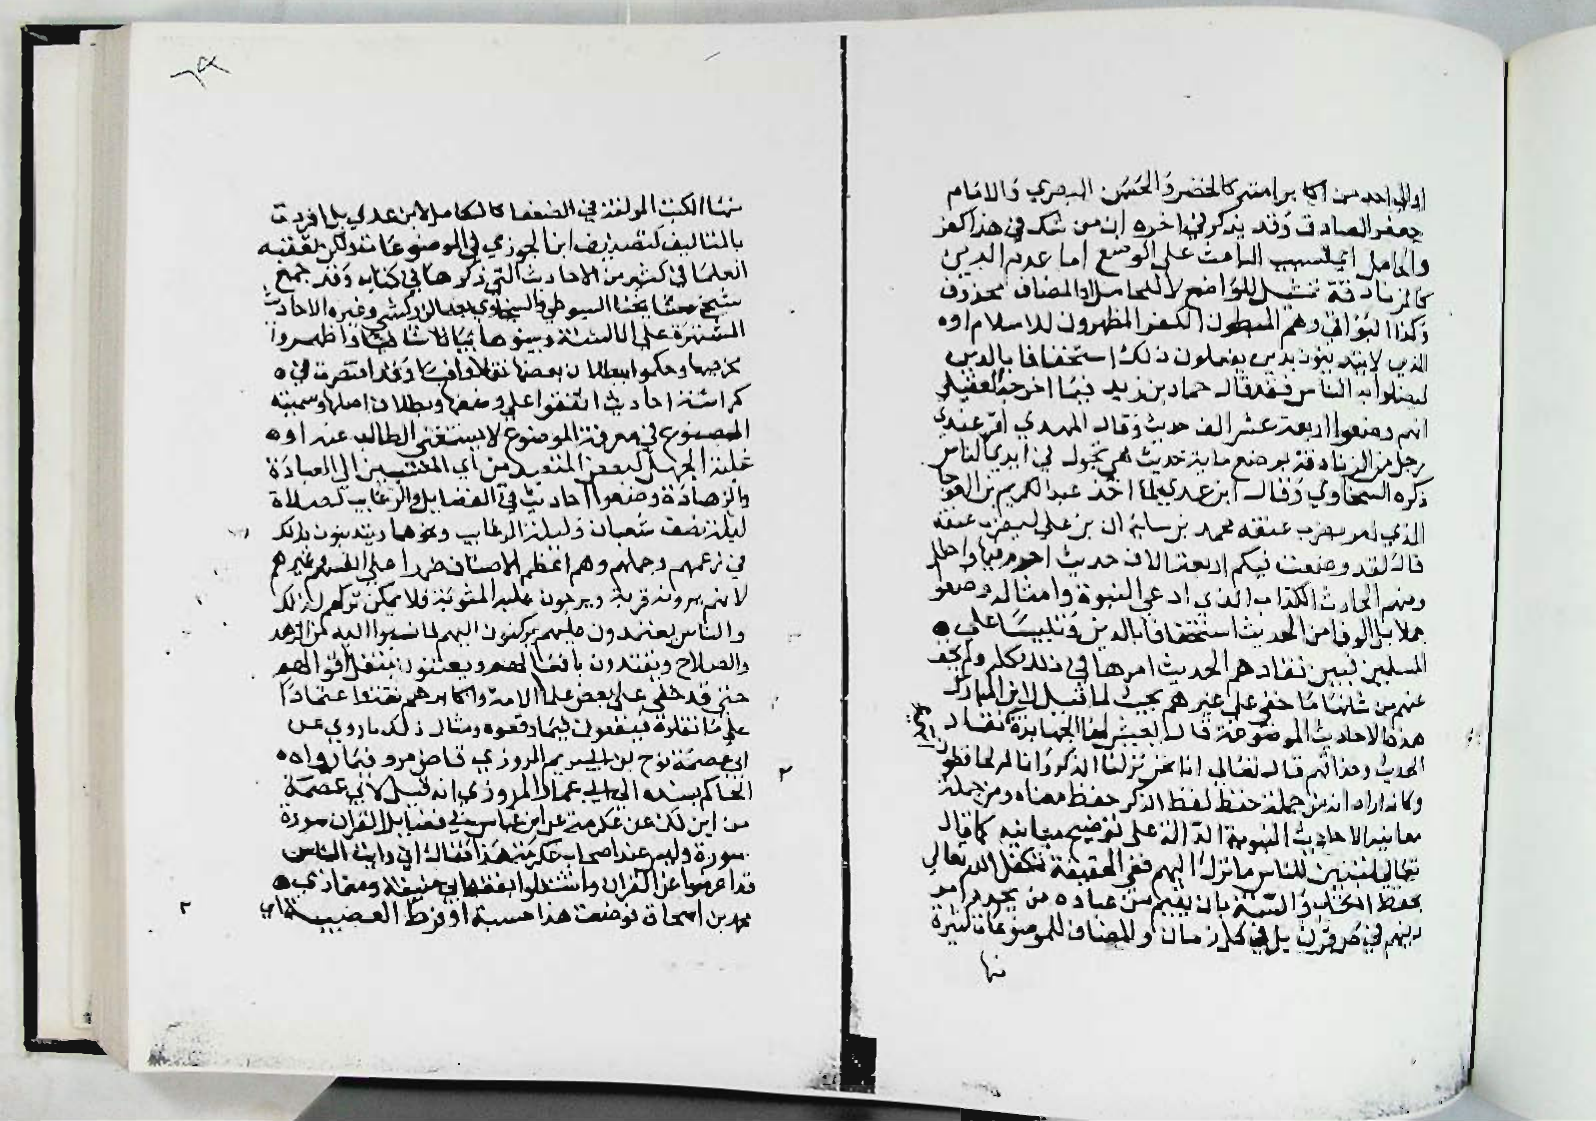 او الي احد من اكابر امته كالخضر والحسن البصري والامام
جعفر الصادق وقد يذكر في اخره ان من شك في هذا كفر
والحامل اي السبب الباعث علي الوضع اما عدم الدين
كالزنادقة تمثيل للواضع لا للحامل او المضاف محذوف
وكذا البواقي وهم المبطلون الكفر المظهرون للاسلام اوه
الذين لا يتدينون بدين يفعلون ذلك استخفافا بالدين
ليضلوا به الناس فقد قال حماد بن زيد فيما اخرجه العقيلي
انهم وضعوا اربعة عشر الف حديث وقال المهدي اقر عندي
رجل من الزنادقة بوضع ماية حديث هي تجول في ايدي الناس
ذكره السخاوي وقال ابن عدي لما اخذ عبد الكريم بن العوجا
الذي امر بضرب عنقه محمد بن سليمان بن علي ليضرب عنقه
قال لقد وضعت فيكم اربعة الاف حديث احرم فيها واحلل
ومنهم الحارث الكذاب الذي ادعي النبوة وامثاله وضعوا
جملا بل الوفا من الحديث استخفافا بالدين وتلبيسا علي
المسلمين فبين نقاد هم الحديث امرها في ذلك كله ولم يخف
عنهم من شانها ما خفي علي غيرهم بحيث لما قيل لابن المبارك
هذه الاحاديث الموضوعة قال يعيش لها الجهابذة نقاد
الحديث وحذاقهم قال تعالي انا نحن نزلنا الذكر وانا له لحافظون
وكانه اراد ان من جملة حفظ لفظ الذكر حفظ معناه ومن جملة
معانيه الاحاديث النبوية الدالة علي توضيح معانيه كما قال
تعالي لتبين للناس ما نزل اليهم ففي الحقيقة تكفل الله تعالي
بحفظ الكتاب والسنة بان يقيم من عباده من يجدد امر
دينهم في كل قرن بل في كل زمان والمضاف للموضوعات كثيرة
منها
منها الكتب المولفة في الضعفا كالكامل لابن عدي بل افردت
بالتاليف كتصنيف ابن الجوزي في الموضوعات ولكن تعقبه
العلما في كثير من الاحاديث التي ذكرها في كتابه وقد جمع
شيخ مشايخنا السيوطي والسخاوي بعد الزركشي وغيره الاحاديث
المشتهرة علي الالسنة وبينوها بيانا شافيا واظهروا
مخرجها وحكموا ببطلان بعضها نقلا وافيا وقد اقتصرت في
كراسة احاديث اتفقوا علي وضعها وبطلان اصلها وسميته
المصنوع في معرفة الموضوع لا يستغني الطالب عنه اوه
غلبة الجهل كبعض المتعبدين اي المنتسبين الي العبادة
والزهادة وضعوا احاديث في الفضايل والرغايب كصلاة
ليلة نصف شعبان وليلة الرغايب ونحوهما ويتدينون بذلك
في زعمهم وجهلهم وهم اعظم الاصناف ضررا علي انفسهم وغيرهم
لانهم يرونه قربة ويرجون عليه المثوبة فلا يمكن تركهم لذلك
والناس يعتمدون عليهم ويركنون اليهم لما نسبوا اليه من الزهد
والصلاح ويقتدون بافعالهم ويعتنون بنقل اقوالهم
حتي قد خفي علي بعض علما الامة واكابرهم فعنه اعتمادا
علي ما نقلوه فيقعون فيما وقعوه ومثال ذلك ما روي عن
ابي عصمة نوح بن ابي مريم المروزي قاضي مرو فيما رواه
الحاكم بسنده الي ابي عمار المروزي انه قيل لابي عصمة
من اين لك عن عكرمة عن ابن عباس في فضايل القران سورة
سورة وليس عند اصحاب عكرمة هذا فقال اني رايت الناس
قد اعرضوا عن القران واشتغلوا بفقه ابي حنيفة ومغازي
محمد بن اسحاق فوضعت هذا حسبة او فرط العصبية
٢
٢